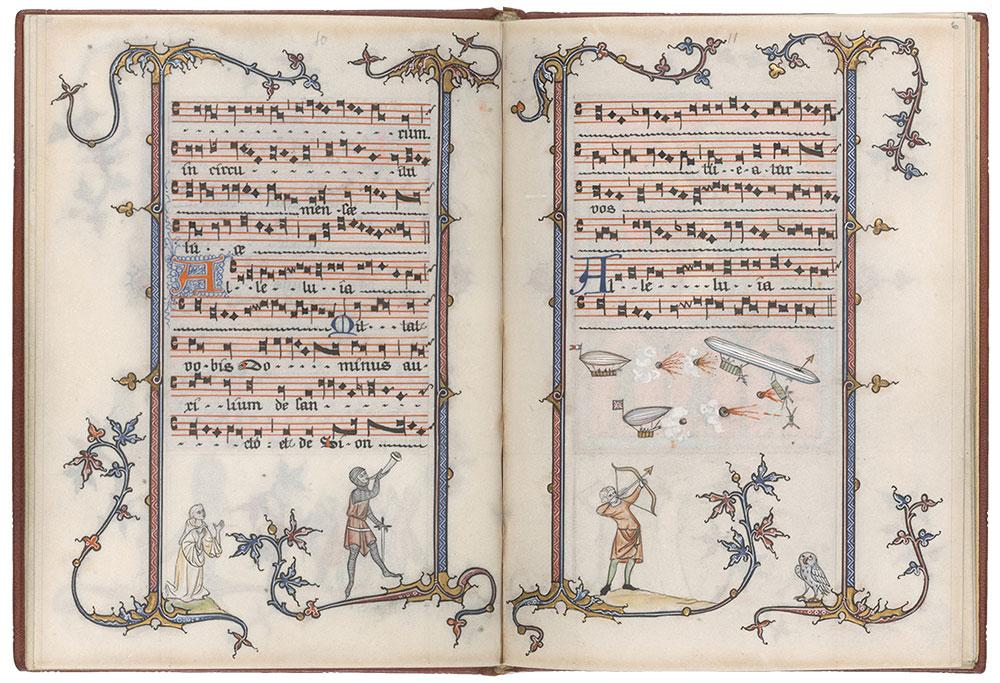 10
rum.
in circu - - itu
men - sæ
tu - - æ
Al - le - lu - ia
Mit - - tat
vo - bis Do - - minus au
xi - - lium de san -
cto : et de Sion
11
6
tu - e - a tur
vos
Al - le - lu - ia